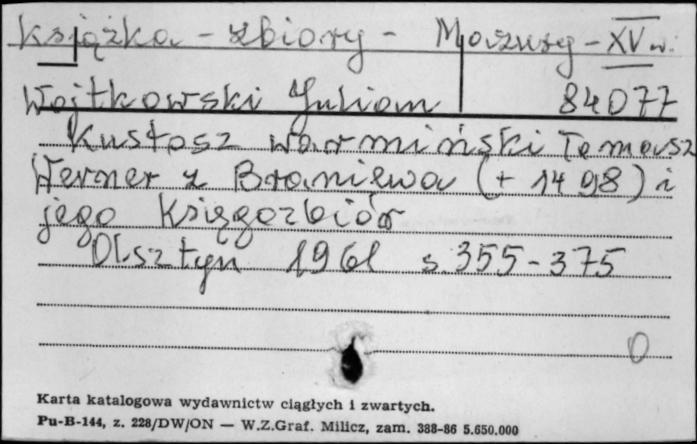 Książka - zbiory - Mazury - XV w.
Wojtkowski Julian 84077
Kustosz warmiński Tomasz
Werner z Braniewa (+ 1498) i
jego Księgozbiór
Olsztyn 1961 s. 355-375
0
Karta katalogowa wydawnictw ciągłych i zwartych.
Pu-B-144, z. 228/DW/ON — W.Z.Graf. Milicz, zam. 388-86 5.650.000